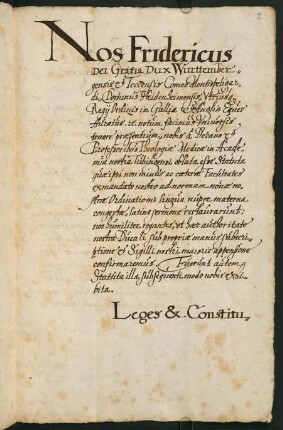 2
Nos Fridericus
Dei Gratia Dux Württember-
gensis & Teccensis Comes Montisbeligar-
di, Dominus Heidenheimensis, utriusq
Regij Ordinis in Gallia & Anglia Eques
Auratus &c. notum facimus Universis
tenore præsentium, nobis à Decano &
Professoribus Theologiæ Medicæ in Acade-
mia nostra Tubingensi oblata esse Statuta
quæ ipsi non minus ac cæteræ Facultates
ex mandato nostro ad normam novæ no-
stræ Ordinationis lingua nuper materna
congestæ, latino sermone
nos humiliter rogantes, ut hæc authoritate
nostra Ducali, sub propriæ manus subscri-
ptione & Sigilli nostri maioris appensione
confirmaremus. Fuerunt autem
Statuta illa subsequenti modo nobis exhi-
bita.
Leges & Constitu-